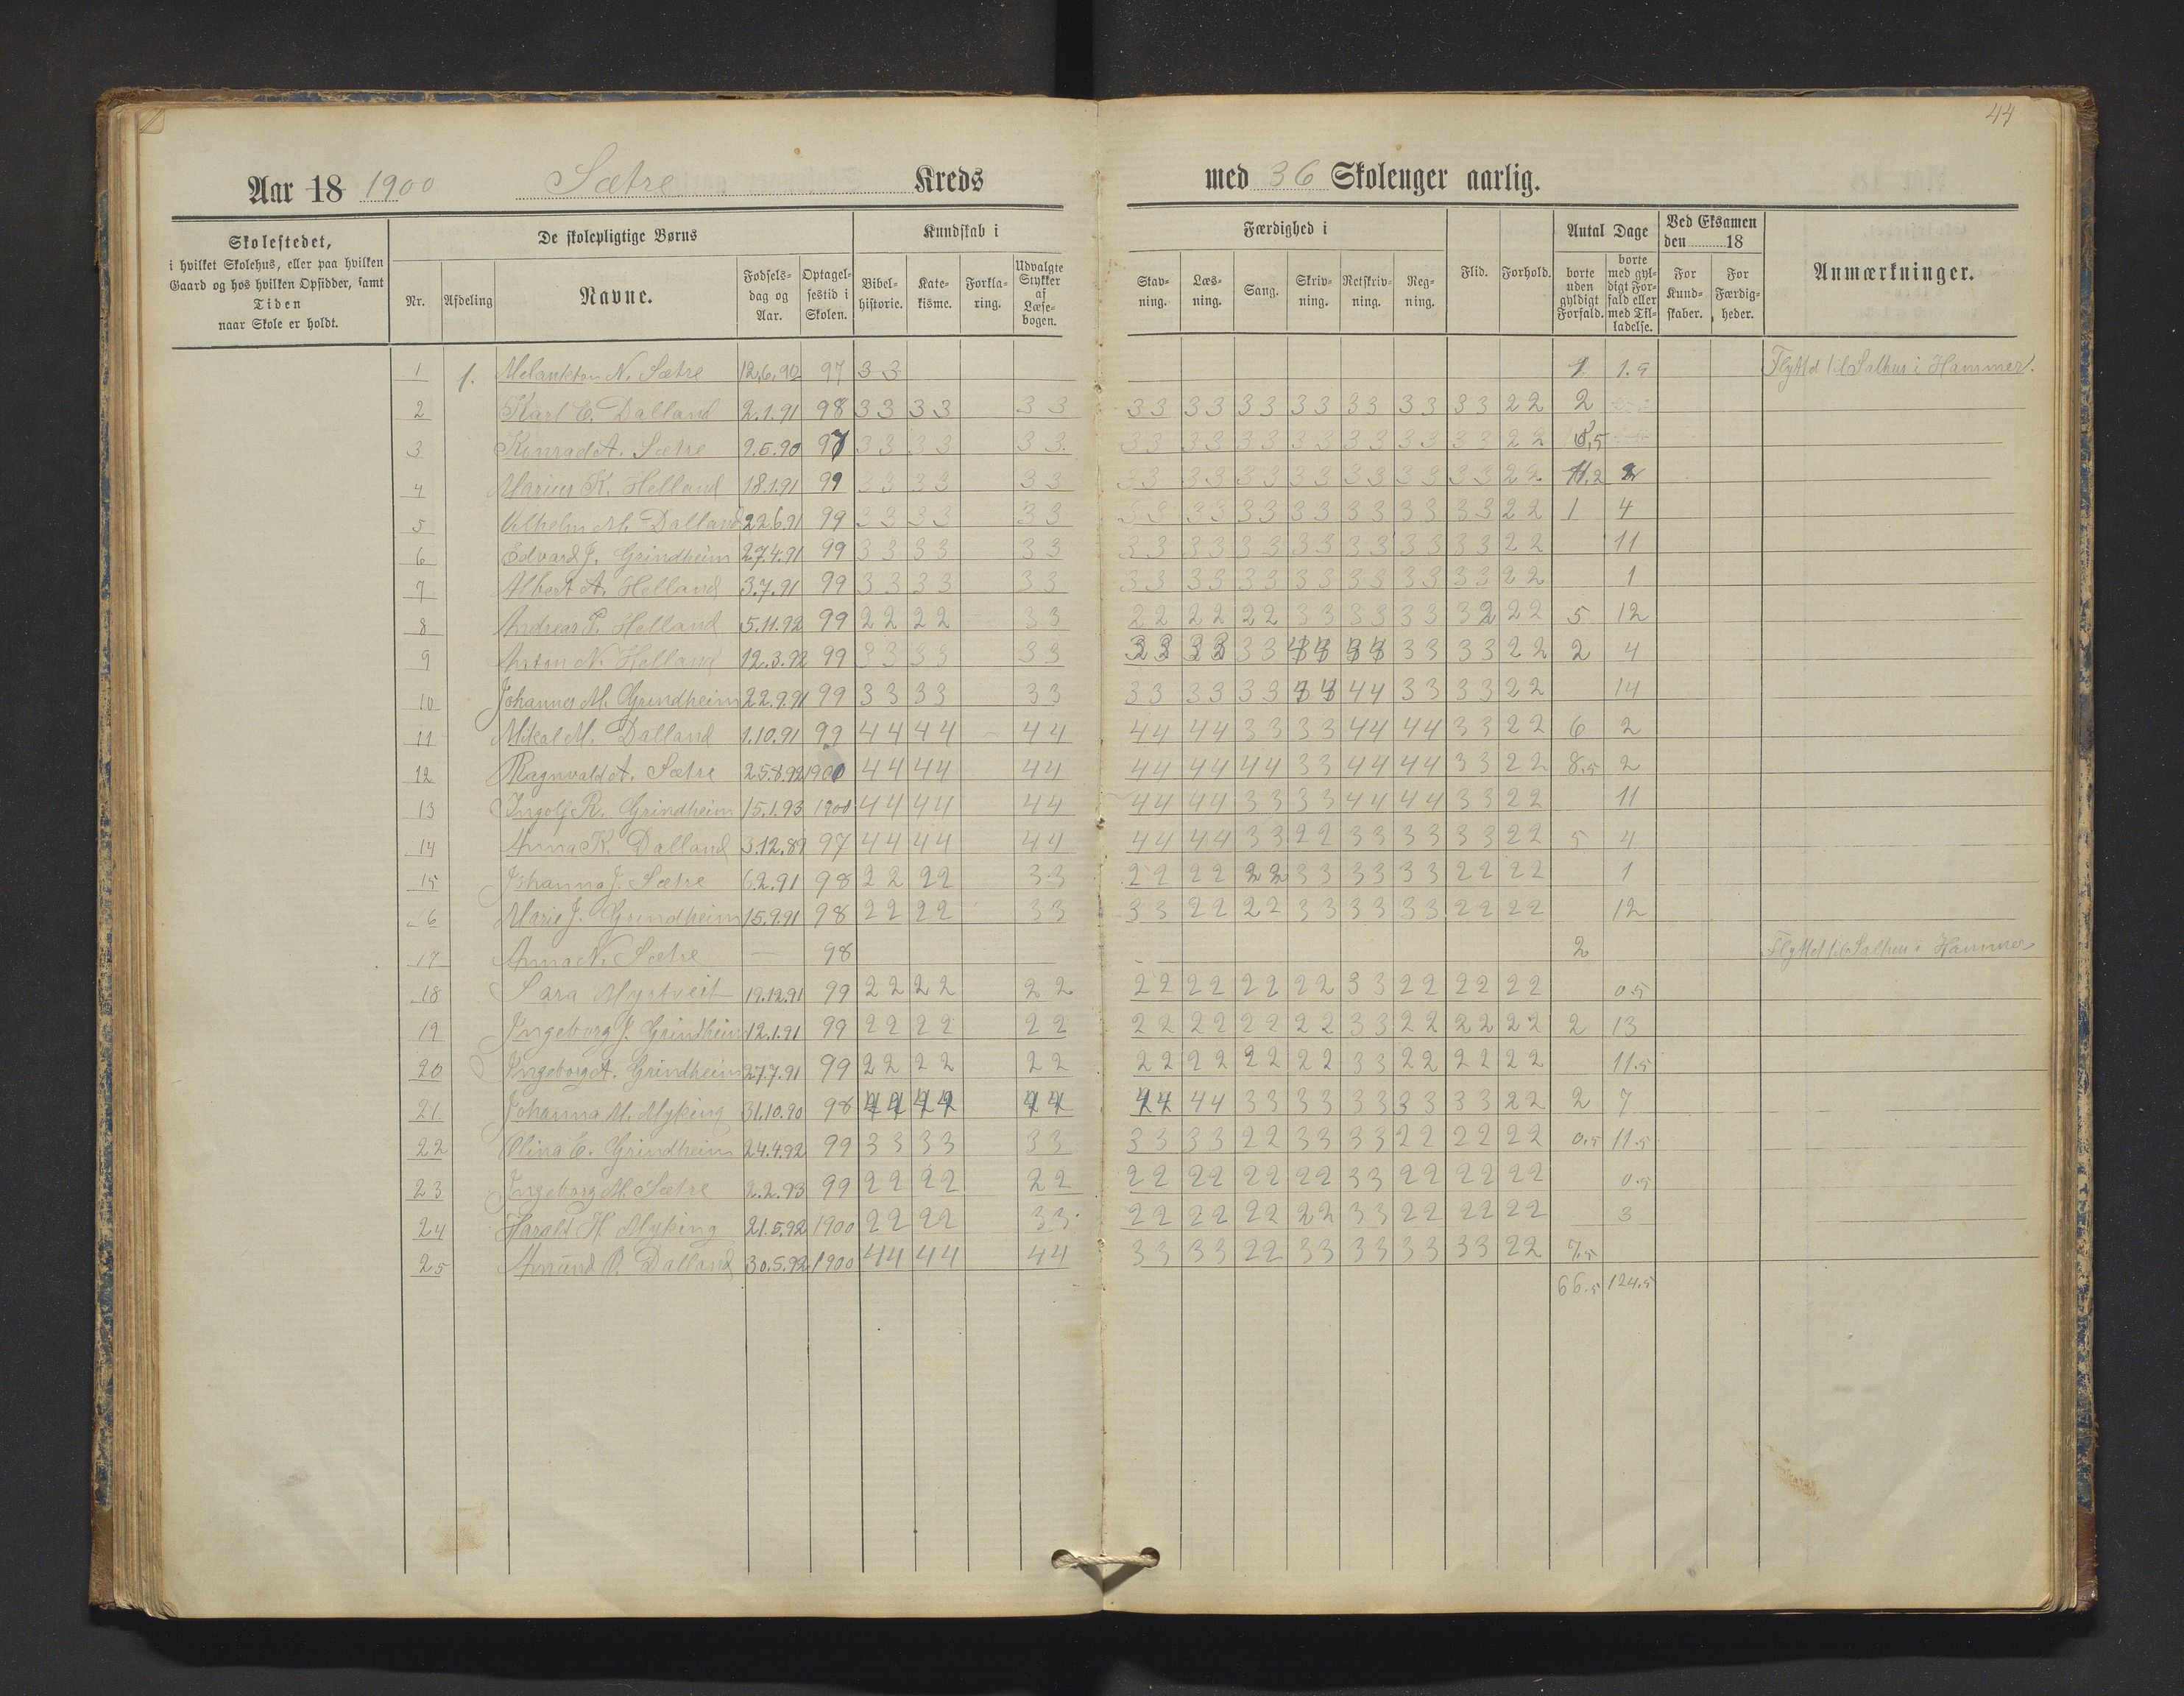 44
Aar 18 1900 Sætre Kreds med 36 Skoleuger aarlig.
Skolestedet, i hvilket Skolehus, eller paa hvilken Gaard og hos hvilken Opsidder, samt Tiden naar Skole er holdt.
De skolepligtige Børns
Nr. Afdeling Navne. Fødsels-dag og Aar. Optagel-sestid i Skolen.
Kundskab i
Bibel-historie. Kate-kisme. Forkla-ring. Udvalgte Stykker af Læse-bogen.
Færdighed i
Stav-ning. Læs-ning. Sang. Skriv-ning. Retskriv-ning. Reg-ning. Flid. Forhold.
Antal Dage
borte uden gyldigt Forfald. borte med gyl-digt For-fald eller med Til-ladelse.
Ved Eksamen den 18
For Kund-skaber. For Færdig-heder.
Anmærkninger.
1 1. Melankton N. Sætre 12.6.90 97 3 3 1 1.5 Flyttd til Salhus i Hammer.
2 Karl E. Dalland 2.1.91 98 3 3 3 3 3 3 3 3 3 3 3 3 3 3 3 3 3 3 3 3 2 2 2
3 Konrad A. Sætre 9.5.90 97 3 3 3 3 3 3 3 3 3 3 3 3 3 3 3 3 3 3 3 3 2 2 8.5
4 Marius K. Helland 18.1.91 99 3 3 3 3 3 3 3 3 3 3 3 3 3 3 3 3 3 3 3 3 2 2
5 Vilhelm M. Dalland 22.6.91 99 3 3 3 3 3 3 3 3 3 3 3 3 3 3 3 3 3 3 3 3 2 2 1 4
6 Edvard J. Grindheim 27.4.91 99 3 3 3 3 3 3 3 3 3 3 3 3 3 3 3 3 3 3 3 3 2 2 11
7 Albert A. Helland 3.7.91 99 3 3 3 3 3 3 3 3 3 3 3 3 3 3 3 3 3 3 3 3 2 2 1
8 Andreas P. Helland 5.11.92 99 2 2 2 2 3 3 2 2 2 2 2 2 3 3 3 3 3 3 3 2 2 2 5 12
9 Anton N. Helland 12.3.92 99 3 3 3 3 3 3 3 3 3 3 3 3 3 3 3 3 2 2 2 4
10 Johannes M. Grindheim 22.9.91 99 3 3 3 3 3 3 3 3 3 3 3 3 4 4 3 3 3 3 2 2 14
11 Mikal M. Dalland 1.10.91 99 4 4 4 4 4 4 4 4 4 4 3 3 3 3 4 4 4 4 3 3 2 2 6 2
12 Ragnvald A. Sætre 25.8.92 1900 4 4 4 4 4 4 4 4 4 4 4 4 3 3 4 4 4 4 3 3 2 2 8.5 2
13 Ingolf R. Grindheim 15.1.93 1900 4 4 4 4 4 4 4 4 4 4 3 3 3 3 4 4 4 4 3 3 2 2 11
14 Anna K. Dalland 3.12.89 97 4 4 4 4 4 4 4 4 4 4 3 3 2 2 3 3 3 3 3 3 2 2 5 4
15 Johanna J. Sætre 6.2.91 98 2 2 2 2 3 3 2 2 2 2 2 2 3 3 3 3 3 3 2 2 2 2 1
16 Marie J. Grindheim 15.9.91 98 2 2 2 2 3 3 3 3 2 2 2 2 3 3 3 3 3 3 2 2 2 2 12
17 Anna N. Sætre — 98 2 Flyttet til Salhus i Hammer
18 Sara Myrtveit 19.12.91 99 2 2 2 2 2 2 2 2 2 2 2 2 2 2 3 3 2 2 2 2 2 2 0.5
19 Ingeborg J. Grindheim 12.1.91 99 2 2 2 2 2 2 2 2 2 2 2 2 2 2 3 3 2 2 2 2 2 2 2 13
20 Ingeborg A. Grindheim 27.7.91 99 2 2 2 2 2 2 2 2 2 2 2 2 2 2 3 3 2 2 2 2 2 2 11.5
21 Johanna M. Myking 31.10.90 98 4 4 4 4 4 4 4 4 4 4 3 3 3 3 3 3 3 3 3 3 2 2 2 7
22 Olina E. Grindheim 24.4.92 99 3 3 3 3 3 3 3 3 3 3 2 2 3 3 3 3 2 2 2 2 2 2 0.5 11.5
23 Ingeborg M. Sætre 2.2.93 99 2 2 2 2 2 2 2 2 2 2 2 2 2 2 3 3 2 2 2 2 2 2 0.5
24 Harald H. Myking 21.5.92 1900 2 2 2 2 3 3 2 2 2 2 2 2 2 2 3 3 2 2 2 2 2 2 3
25 Amund O. Dalland 30.5.92 1900 4 4 4 4 4 4 3 3 3 3 2 2 3 3 3 3 3 3 3 3 2 2 7.5
66.5 124.5